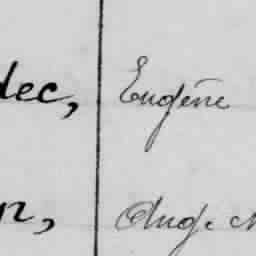 dec, Eugène
n, Ang. M